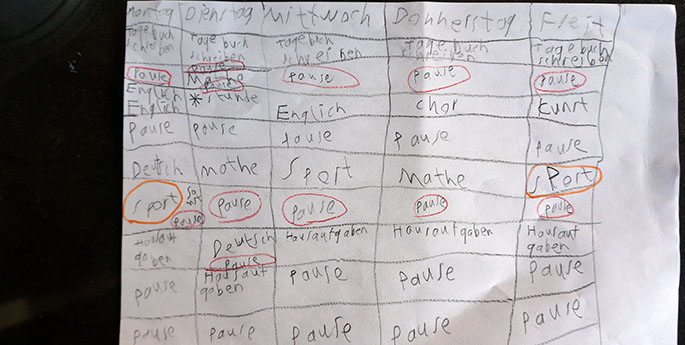 Montag Dienstag Mittwoch Donnerstag Freit
Tagebuch schreiben Tagebuch schreiben Tagebuch schreiben Tagebuch schreiben Tagebuch schreiben
Pause Pause Mathe Pause Pause Pause
Englich Englich Pause *stunde Englich chor Kunst
Pause Pause Pause Pause Pause
Deutsch mathe Sport Mathe Sport
Sport Pause Pause Pause Pause Pause
Hausaufgaben Deutsch Pause Hausaufgaben Hausaufgaben Hausaufgaben
Pause Hausaufgaben Pause Pause Pause
Pause Pause Pause Pause Pause